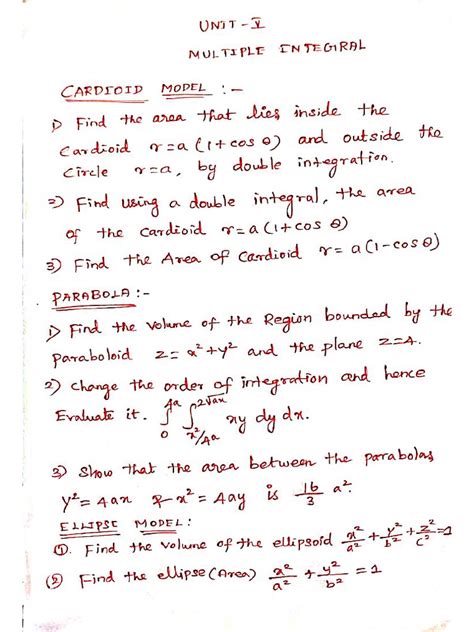 UNIT - V
MULTIPLE INTEGRAL
CARDIOID MODEL :-
1) Find the area that lies inside the
Cardioid r=a(1+cos θ) and outside the
Circle r=a, by double integration.
2) Find using a double integral, the area
of the cardioid r=a(1+cosθ)
3) Find the Area of Cardioid r= a(1-cosθ)
PARABOLA :-
1) Find the volume of the Region bounded by the
Paraboloid z= x²+y² and the plane z=4.
2) Change the order of integration and hence
Evaluate it. ∫₀^{4a} ∫_{x²/4a}^{2√ax} xy dy dx.
3) Show that the area between the parabolas
y²= 4ax & x²= 4ay is 16/3 a².
ELLIPSE MODEL:
①. Find the volume of the ellipsoid x²/a² + y²/b² + z²/c² =1
② Find the ellipse (Area) x²/a² + y²/b² = 1